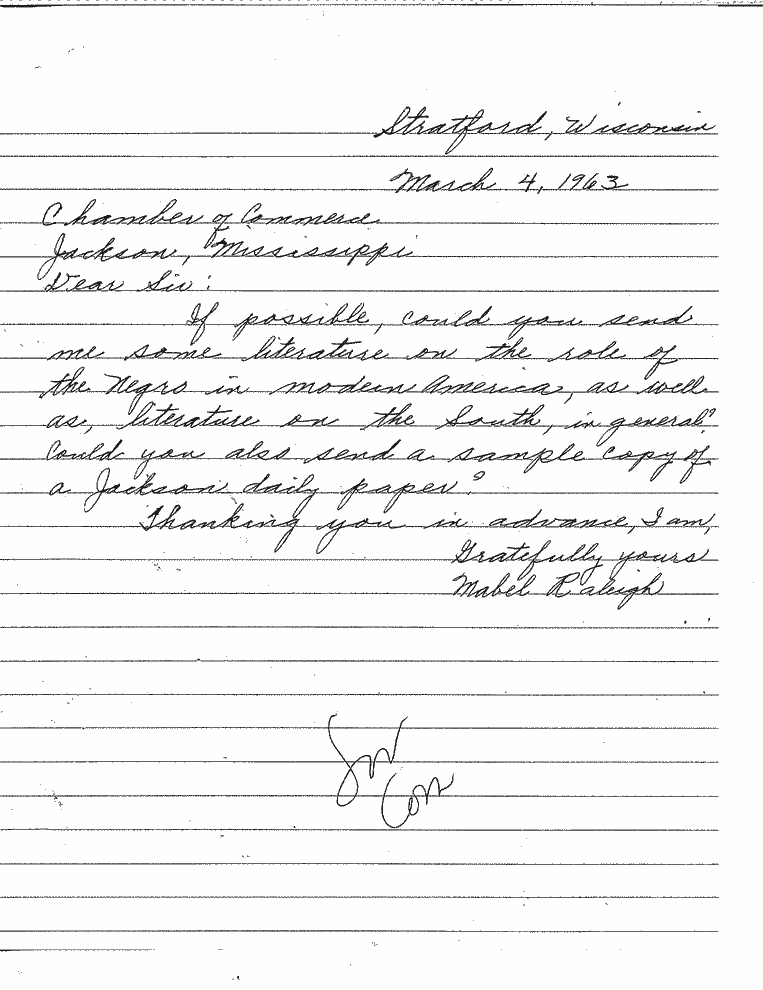 Stratford, Wisconsin
March 4, 1963
Chamber of Commerce
Jackson, Mississippi
Dear Sir:
If possible, could you send
me some literature on the role of
the Negro in modern America, as well
as, literature on the South, in general?
Could you also send a sample copy of
a Jackson daily paper?
Thanking you in advance, I am,
Gratefully yours
Mabel Raleigh